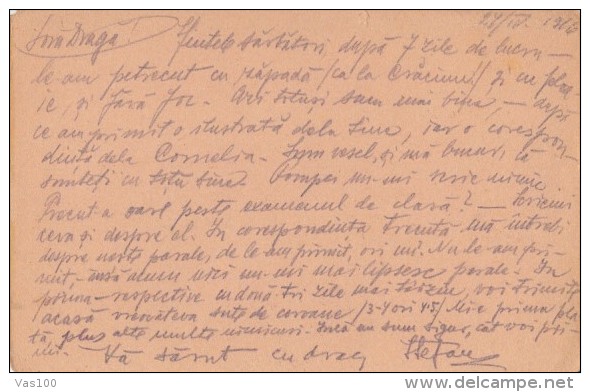 Soră Dragă!
Sfintele sărbători, după 7 zile de lucru
le-am petrecut cu zăpadă (ca la Crăciun!) și cu ploa-
ie, și fără foc. Azi totuși sunt mai bine, — după
ce am primit o ilustrată dela tine, iar o corespon-
dință dela Cornelia. Sunt vesel, și mă bucur, că
sunteți cu toții bine. Pompei nu-mi scrie nimic.
Trecut-a oare peste examenul de clasă? — Scrie-mi
ceva și despre el. In corespondința trecută mă întrebi
despre niște parale, de le-am primit, ori nu. Nu le-am pri-
mit, însă acum nici nu-mi mai lipsesc parale. In
prima respective în două trei zile mai târziu, voi trimite
acasă vreo câteva sute de coroane (3-4 ori 4-5) Mie prima pla-
tă, plus alte multe nimicuri. Încă nu sunt sigur, cât voi pri-
mi. Vă sărut cu drag Stefan
Vas100
www.delcampe.net